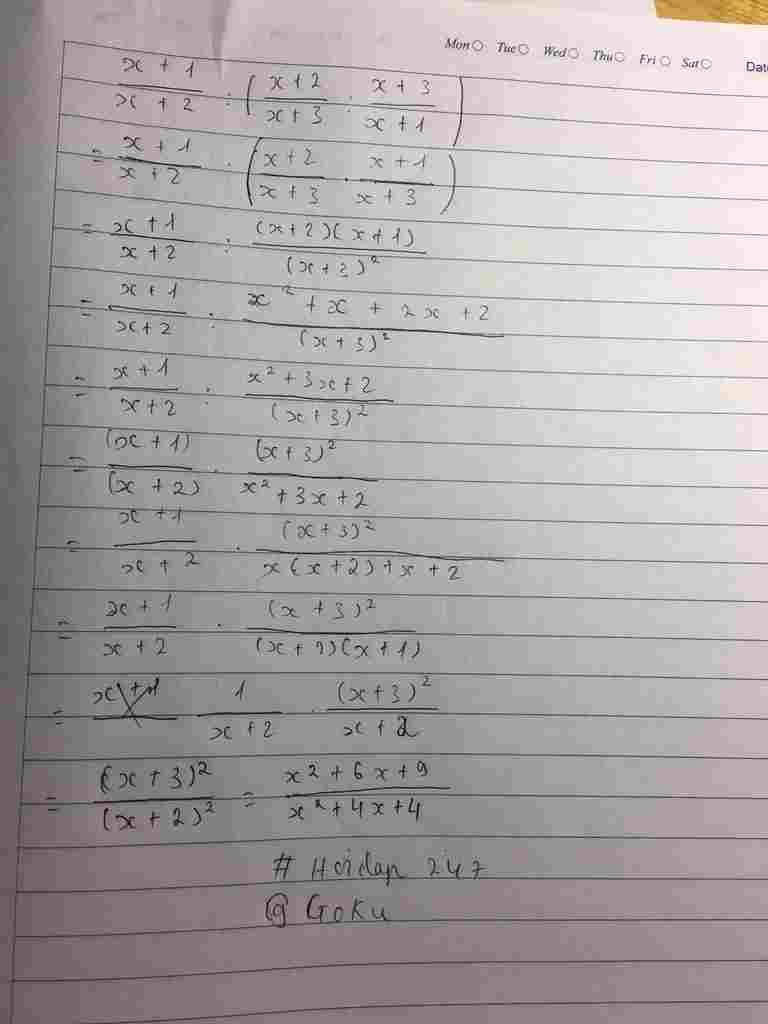 Mon Tue Wed Thu Fri Sat Dat
(x + 1)/(x + 2) : ( (x+2)/(x+3) : (x + 3)/(x + 1) )
= (x + 1)/(x + 2) : ( (x+2)/(x + 3) . (x + 1)/(x + 3) )
= (x + 1)/(x + 2) : ((x+2)(x+1))/((x+3)²)
= (x + 1)/(x+2) : (x² + x + 2x + 2)/((x+3)²)
= (x + 1)/(x+2) : (x² + 3x + 2)/((x+3)²)
= (x + 1)/(x + 2) . (x+3)²/(x² + 3x + 2)
= (x + 1)/(x + 2) . (x+3)²/(x(x+2) + x + 2)
= (x + 1)/(x + 2) . (x + 3)²/((x + 2)(x + 1))
= 1/(x + 2) . (x+3)²/(x + 2)
= (x + 3)²/(x + 2)² = (x2 + 6x + 9)/(x² + 4x + 4)
# Hoidap 247
@ Goku